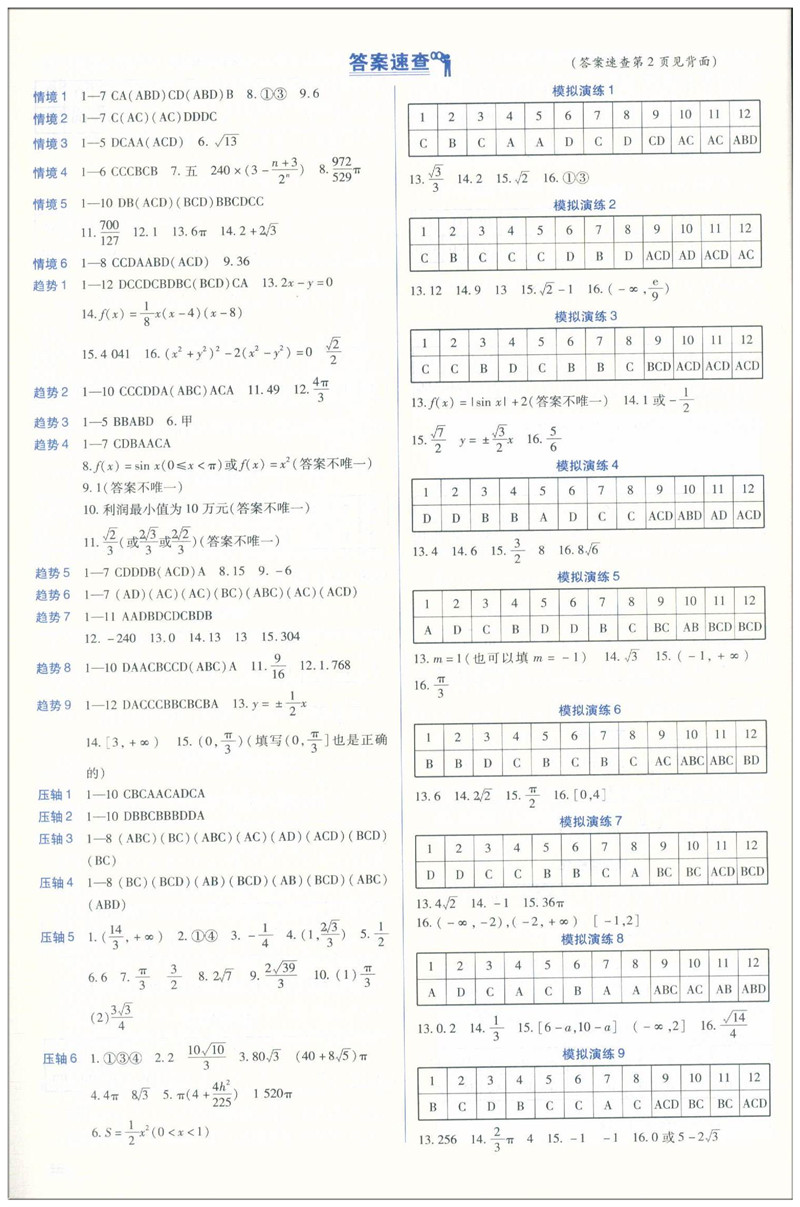 答案速查
(答案速查第2页见背面)
情境1 1—7 CA(ABD)CD(ABD)B 8.①③ 9.6
情境2 1—7 C(AC)(AC)DDDC
情境3 1—5 DCAA(ACD) 6.√13
情境4 1—6 CCCBCB 7.五 240×(3-(n+3)/2ⁿ) 8.972/529π
情境5 1—10 DB(ACD)(BCD)BBCDCC
11.700/127 12.1 13.6π 14.2+2√3
情境6 1—8 CCDAABD(ACD) 9.36
趋势1 1—12 DCCDCBDBC(BCD)CA 13.2x-y=0
14.f(x)=1/8x(x-4)(x-8)
15.4 041 16.(x²+y²)²-2(x²-y²)=0 √2/2
趋势2 1—10 CCCDDA(ABC)ACA 11.49 12.4π/3
趋势3 1—5 BBABD 6.甲
趋势4 1—7 CDBAACA
8.f(x)=sin x(0≤x<π)或f(x)=x²(答案不唯一)
9.1(答案不唯一)
10.利润最小值为10万元(答案不唯一)
11.√2/3(或2√3/3或2√2/3)(答案不唯一)
趋势5 1—7 CDDDB(ACD)A 8.15 9.-6
趋势6 1—7 (AD)(AC)(AC)(BC)(ABC)(AC)(ACD)
趋势7 1—11 AADBDCDCBDB
12.-240 13.0 14.13 13 15.304
趋势8 1—10 DAACBCCD(ABC)A 11.9/16 12.1.768
趋势9 1—12 DACCCBBCBCBA 13.y=±1/2x
14.[3,+∞) 15.(0,π/3)(填写(0,π/3]也是正确
的)
压轴1 1—10 CBCAACADCA
压轴2 1—10 DBBCBBBDDA
压轴3 1—8 (ABC)(BC)(ABC)(AC)(AD)(ACD)(BCD)
(BC)
压轴4 1—8 (BC)(BCD)(AB)(BCD)(AB)(BCD)(ABC)
(ABD)
压轴5 1.(14/3,+∞) 2.①④ 3.-1/4 4.(1,2√3/3) 5.1/2
6.6 7.π/3 3/2 8.2√7 9.2√39/3 10.(1)π/3
(2)3√3/4
压轴6 1.①③④ 2.2 10√10/3 3.80√3 (40+8√5)π
4.4π 8√3 5.π(4+4h²/225) 1 520π
6.S=1/2x²(0<x<1)
模拟演练1
1 2 3 4 5 6 7 8 9 10 11 12
C B C A A D C D CD AC AC ABD
13.√3/3 14.2 15.√2 16.①③
模拟演练2
1 2 3 4 5 6 7 8 9 10 11 12
C B C C C D B D ACD AD ACD AC
13.12 14.9 13 15.√2-1 16.(-∞,e/9)
模拟演练3
1 2 3 4 5 6 7 8 9 10 11 12
C C B D C B B C BCD ACD ACD ACD
13.f(x)=|sin x|+2(答案不唯一) 14.1或-1/2
15.√7/2 y=±√3/2x 16.5/6
模拟演练4
1 2 3 4 5 6 7 8 9 10 11 12
D D B B A D C C ACD ABD AD ACD
13.4 14.6 15.3/2 8 16.8√6
模拟演练5
1 2 3 4 5 6 7 8 9 10 11 12
A D C B D D B C BC AB BCD BCD
13.m=1(也可以填m=-1) 14.√3 15.(-1,+∞)
16.π/3
模拟演练6
1 2 3 4 5 6 7 8 9 10 11 12
B B D C B C B C AC ABC ABC BD
13.6 14.2√2 15.π/2 16.[0,4]
模拟演练7
1 2 3 4 5 6 7 8 9 10 11 12
D D C C B B C A BC BC ACD BCD
13.4√2 14.-1 15.36π
16.(-∞,-2),(-2,+∞) [-1,2]
模拟演练8
1 2 3 4 5 6 7 8 9 10 11 12
A D C A C B A A ABC AC AB ABD
13.0.2 14.1/3 15.[6-a,10-a] (-∞,2] 16.√14/4
模拟演练9
1 2 3 4 5 6 7 8 9 10 11 12
B C D B C C A C ACD BC BC ACD
13.256 14.2/3π 4 15.-1 -1 16.0或5-2√3